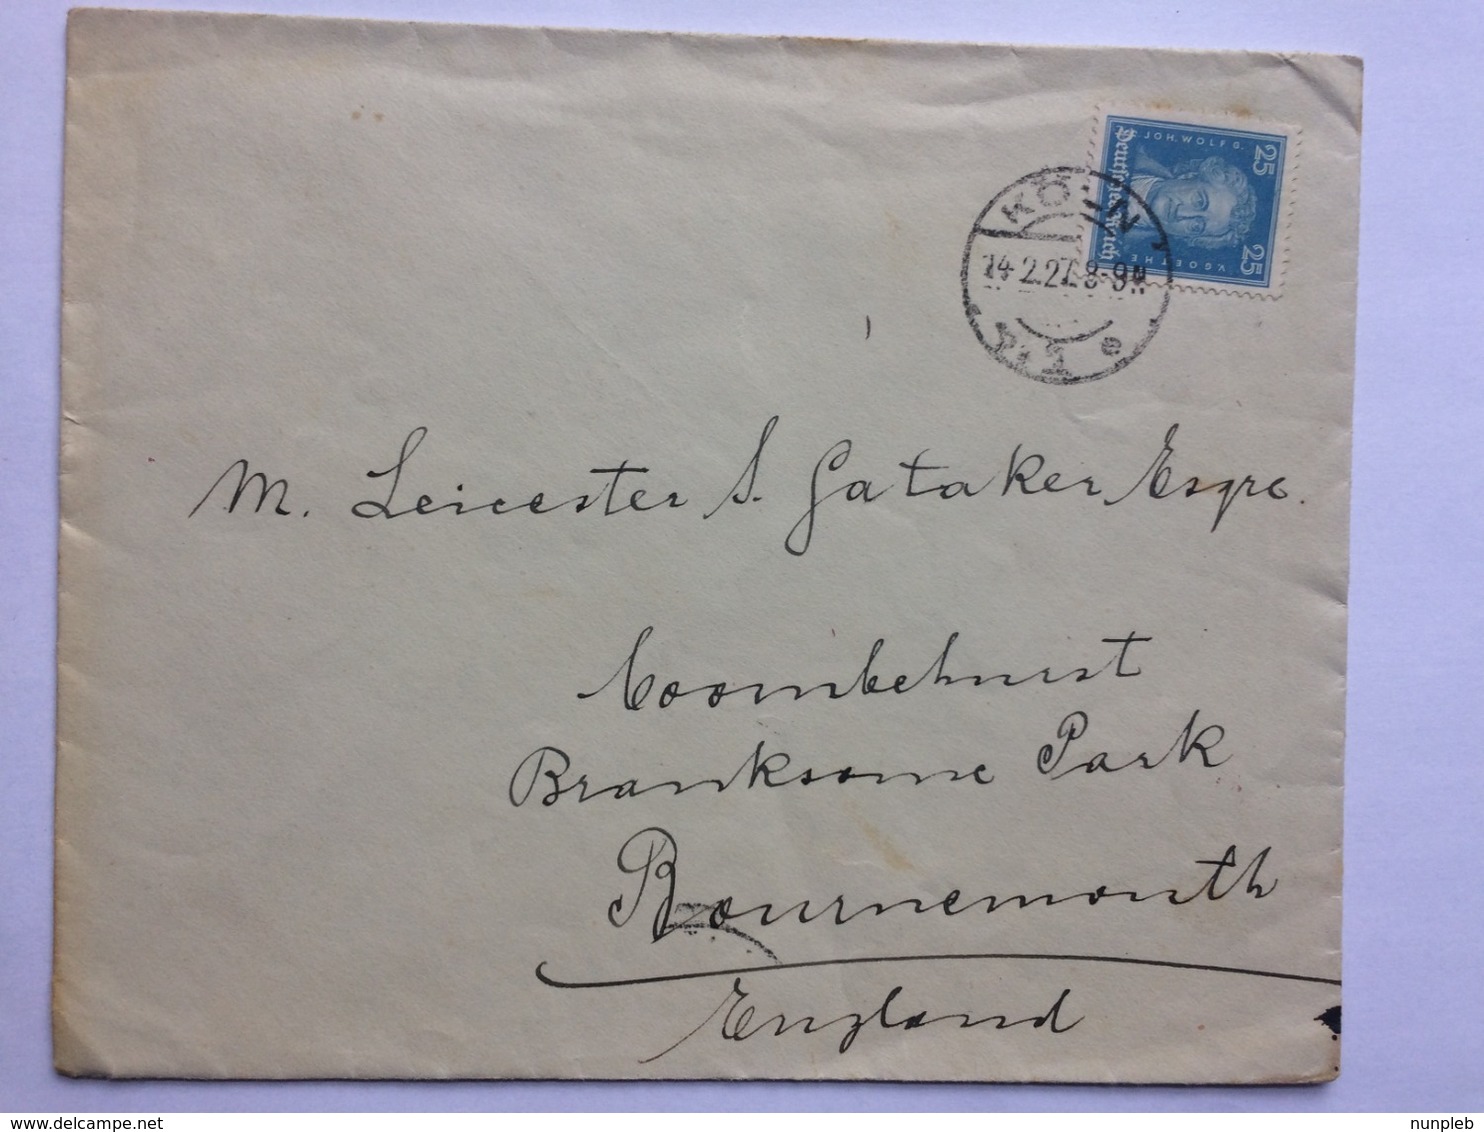 JOH. WOLFG.
V. GOETHE
25
25
Deutsches Reich
KÖLN
14.2.27. 8-9N
e
M. Leicester S. Gataker Esqre.
Coombehurst
Branksome Park
Bournemouth
England
www.delcampe.net
nunpleb